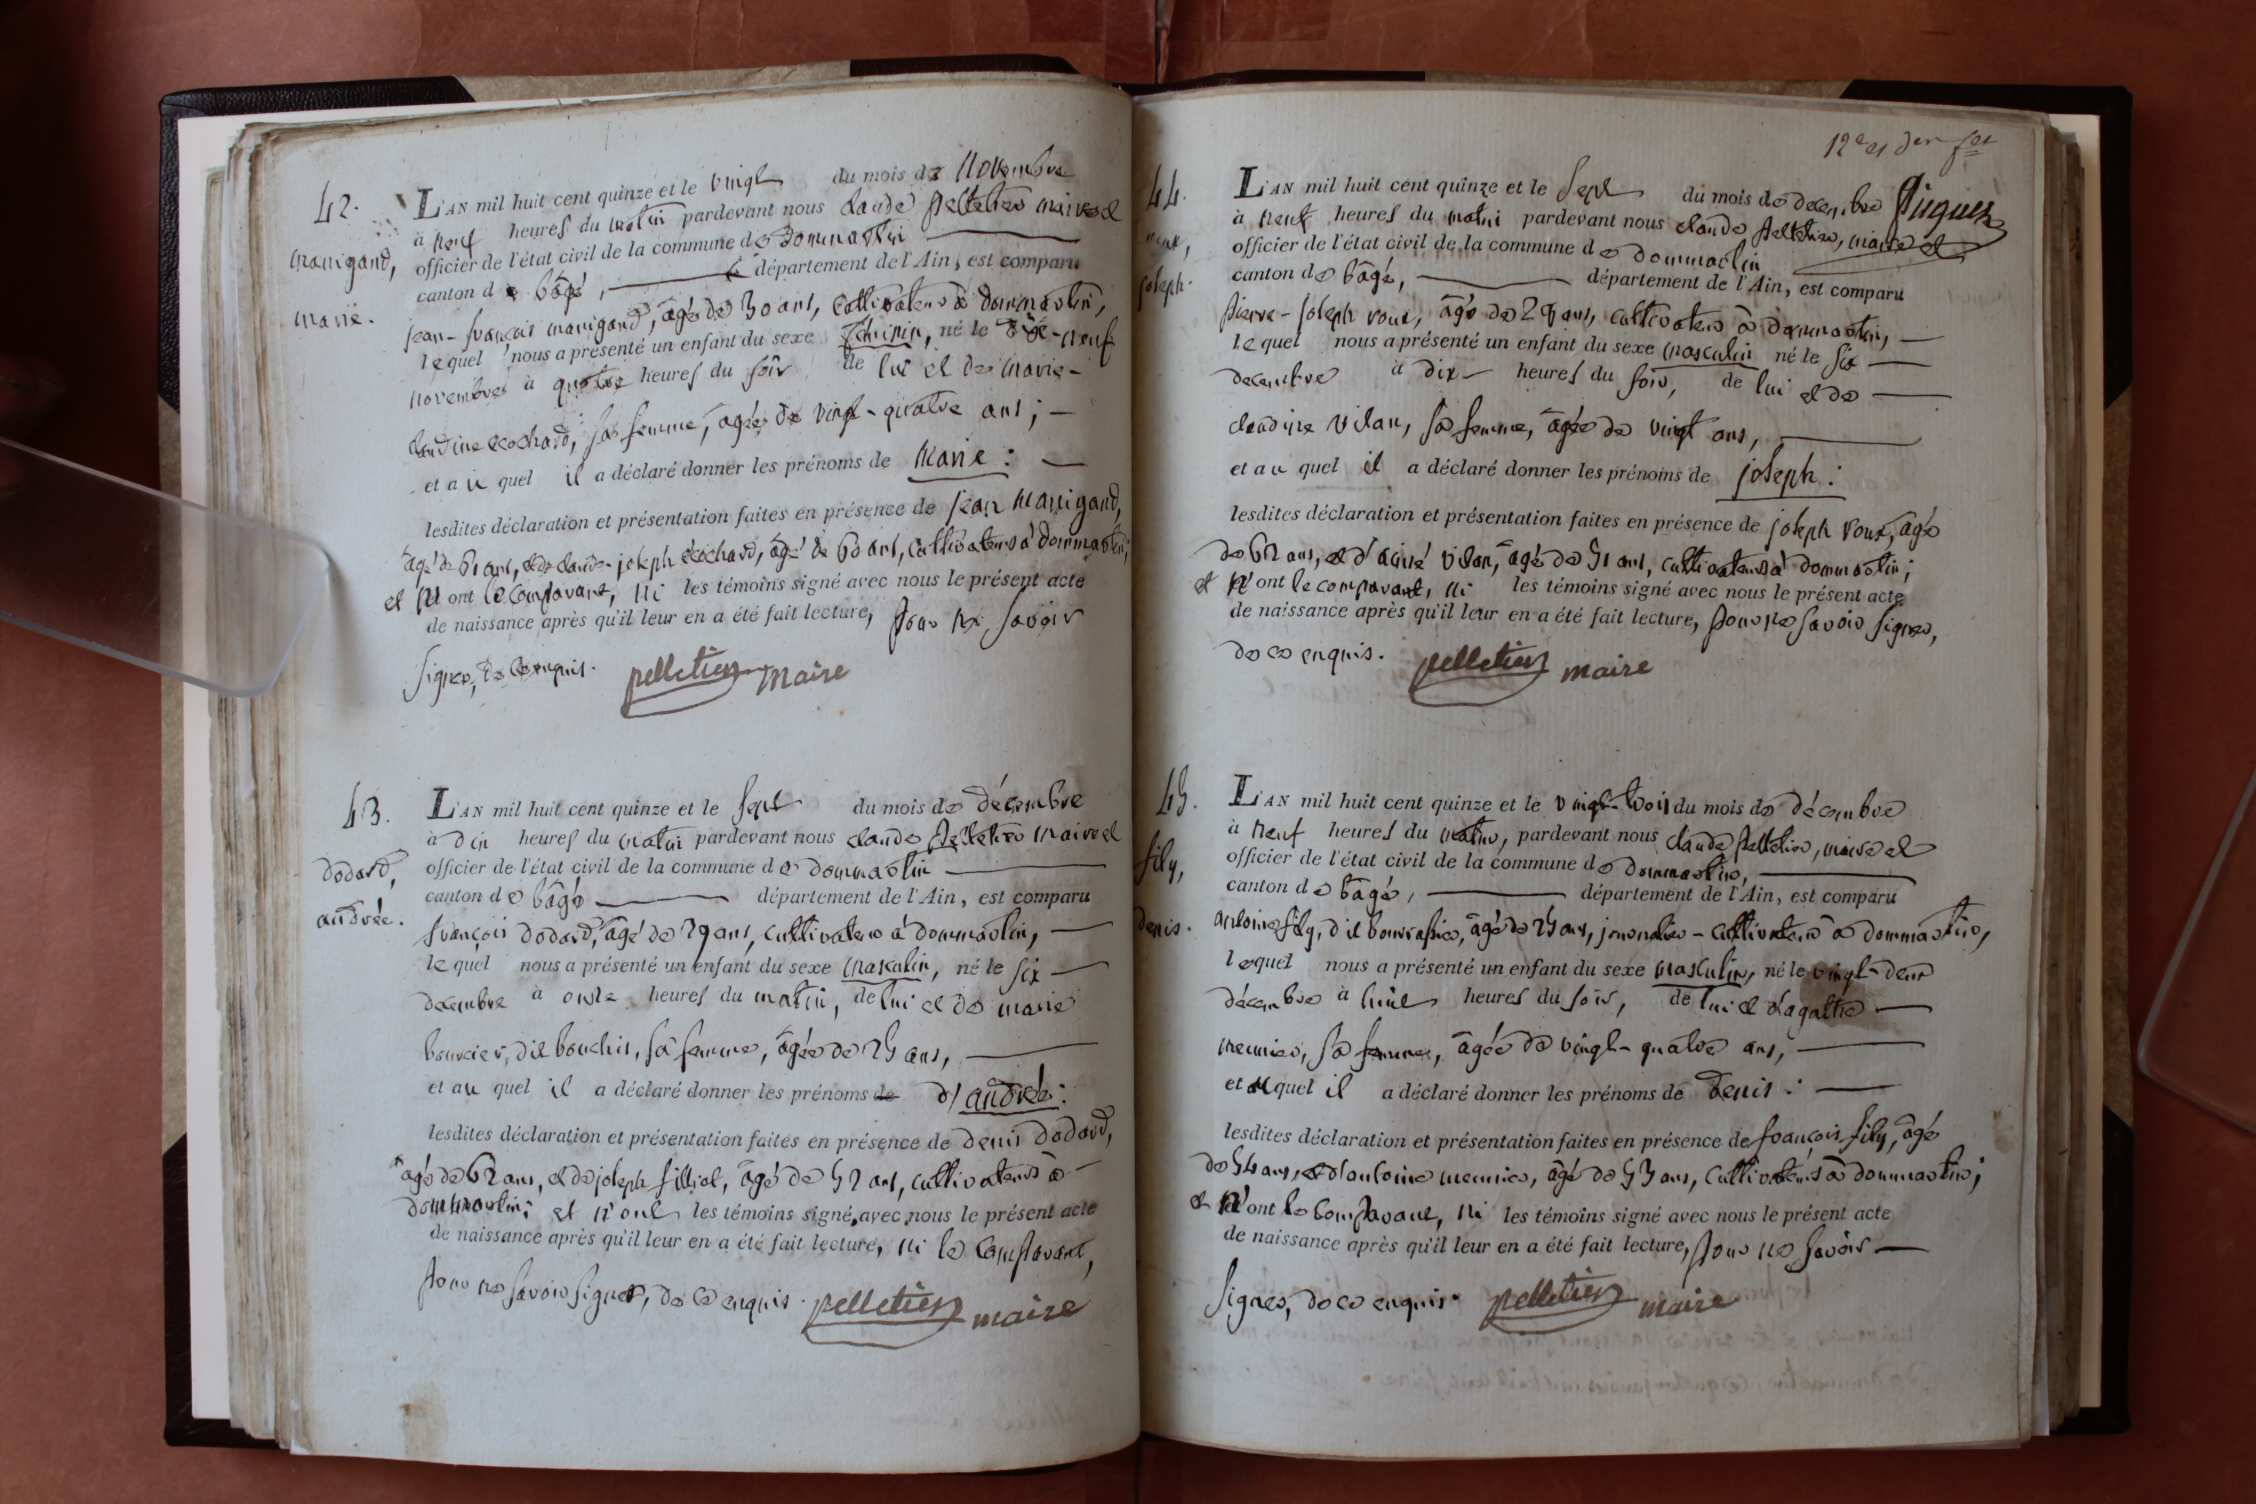 42.
manigand,
marie.
L'AN mil huit cent quinze et le vingt du mois de novembre
à neuf heures du matin pardevant nous claude pelletier maire et
officier de l'état civil de la commune de Dommartin
canton de bâgé, département de l'Ain, est comparu
jean-françois manigand, âgé de 30 ans, cultivateur à dommartin,
lequel nous a présenté un enfant du sexe féminin, né le dix-neuf
novembre à quatre heures du soir de lui et de marie-
claudine ecochard, sa femme, âgée de vingt-quatre ans;
et au quel il a déclaré donner les prénoms de Marie:
lesdites déclaration et présentation faites en présence de jean Manigand,
âgé de 61 ans, et de claude-joseph écochard, âgé de 60 ans, cultivateurs à dommartin;
et n'ont le comparant, ni les témoins signé avec nous le présent acte
de naissance après qu'il leur en a été fait lecture, pour ne savoir
signer, de ce enquis. pelletier maire
43.
dodard,
andrée.
L'AN mil huit cent quinze et le sept du mois de décembre
à dix heures du matin pardevant nous claude pelletier maire et
officier de l'état civil de la commune de dommartin
canton de bâgé département de l'Ain, est comparu
françois dodard, âgé de 29 ans, cultivateur à dommartin,
lequel nous a présenté un enfant du sexe masculin, né le six
decembre à onze heures du matin, de lui et de marie
bourcier, dit bouchis, sa femme, âgée de 25 ans,
et au quel il a déclaré donner les prénoms de d'andrée:
lesdites déclaration et présentation faites en présence de denis dodard,
âgé de 62 ans, et de joseph filliol, âgé de 52 ans, cultivateurs à
dommartin; et n'ont les témoins signé, avec nous le présent acte
de naissance après qu'il leur en a été fait lecture, ni le comparant,
pour ne savoir signer, de ce enquis. pelletier maire
12e et der fet
44.
roux,
joseph.
L'AN mil huit cent quinze et le sept du mois de decembre
à neuf heures du matin pardevant nous claude pelletier, maire et
officier de l'état civil de la commune de dommartin
canton de bâgé, département de l'Ain, est comparu
pierre-joseph roux, âgé de 29 ans, cultivateur à dommartin,
lequel nous a présenté un enfant du sexe masculin né le six
decembre à dix heures du soir, de lui et de
claudine vilan, sa femme, âgée de vingt ans,
et au quel il a déclaré donner les prénoms de joseph:
lesdites déclaration et présentation faites en présence de joseph roux, âgé
de 62 ans, et d'aimé vilan, âgé de 51 ans, cultivateurs à dommartin;
et n'ont le comparant, ni les témoins signé avec nous le présent acte
de naissance après qu'il leur en a été fait lecture, pour ne savoir signer,
de ce enquis. pelletier maire
45.
fily,
denis.
L'AN mil huit cent quinze et le vingt-trois du mois de décembre
à neuf heures du matin, pardevant nous claude pelletier, maire et
officier de l'état civil de la commune de dommartin,
canton de bâgé, département de l'Ain, est comparu
antoine fily, dit bourrasier, âgé de 25 ans, journalier-cultivateur à dommartin,
lequel nous a présenté un enfant du sexe masculin, né le vingt-deux
décembre à huit heures du soir, de lui et d'agathe
meunier, sa femme, âgée de vingt-quatre ans,
et au quel il a déclaré donner les prénoms de denis:
lesdites déclaration et présentation faites en présence de françois fily, âgé
de 54 ans, et d'antoine meunier, âgé de 53 ans, cultivateurs à dommartin;
et n'ont le comparant, ni les témoins signé avec nous le présent acte
de naissance après qu'il leur en a été fait lecture, pour ne savoir
signer, de ce enquis. pelletier maire